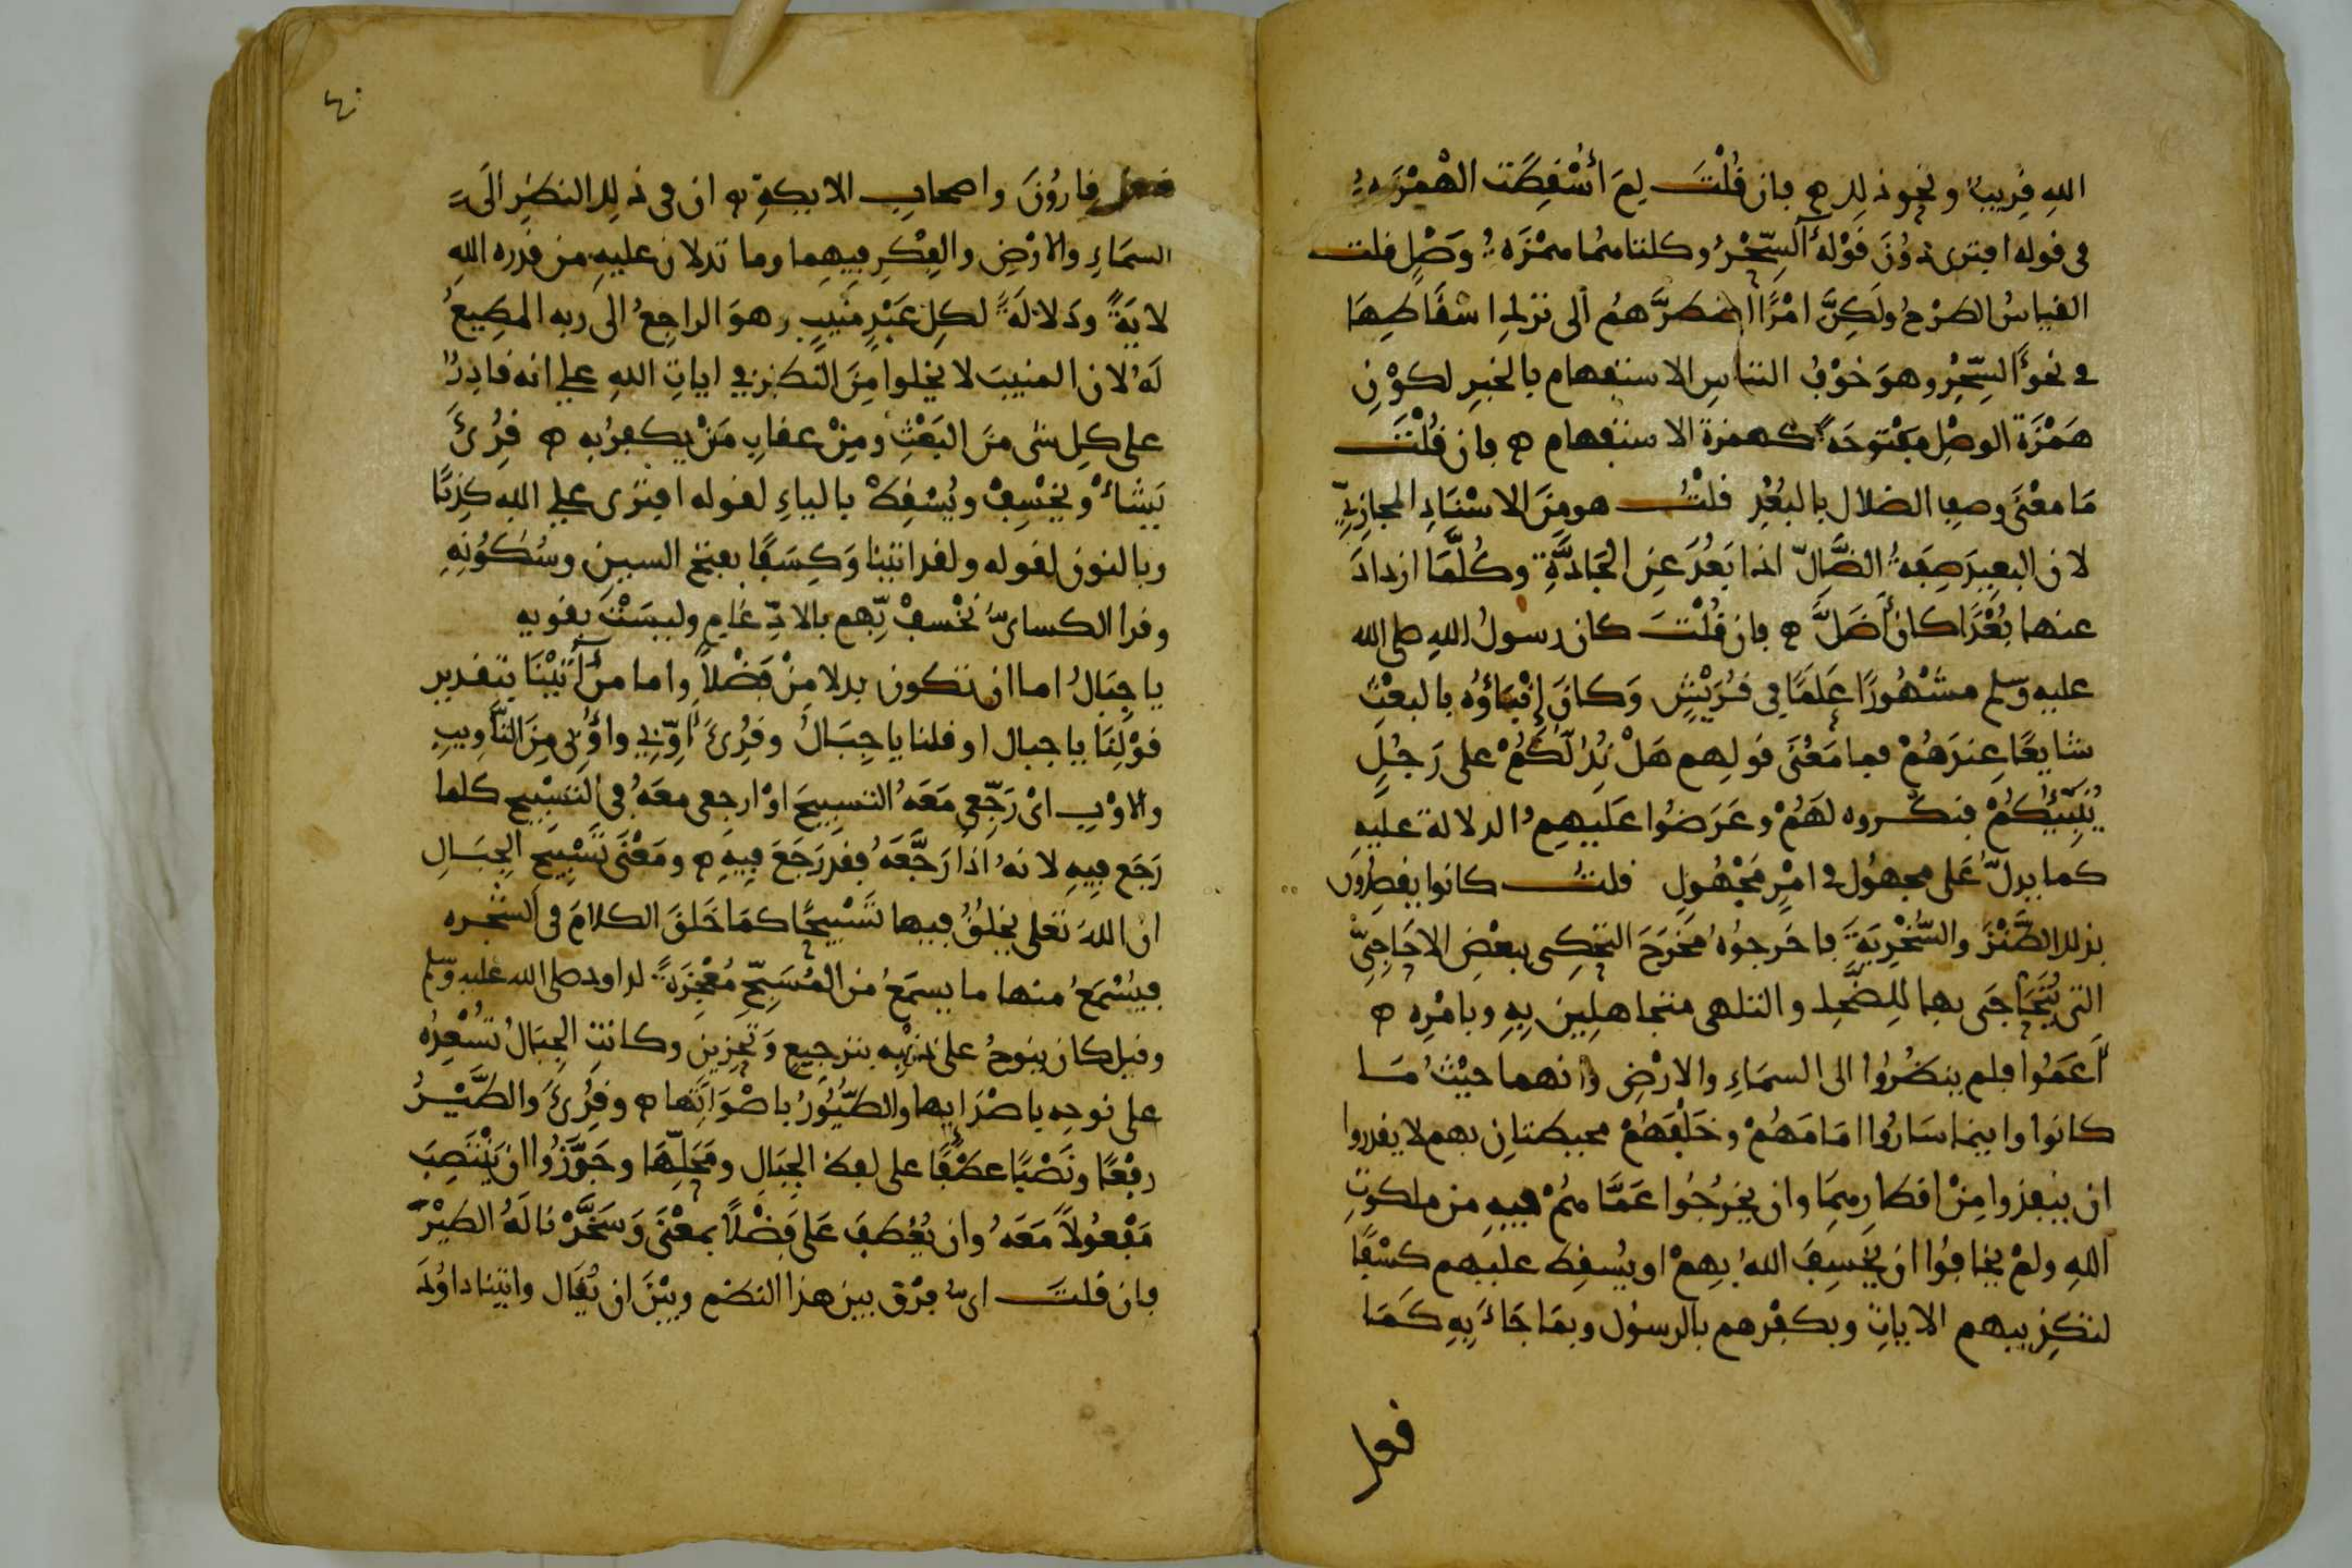 الله قريب ونحو ذلك ه فان قُلْتَ لِمَ أُسْقِطَت الهمْزَةُ
في قوله افترى دُونَ قَوْلِهِ آلسِّحْرُ وكلتاهما همْزَةُ وَصْلٍ قلت
القياسُ الطرْحُ ولَكِنَّ امْرًا اضطرَّهُم الى ترك اسْقَاطِهَا
في نحو آلسِّحْرُ وهو خَوْفُ التباس الاستفهام بالخبر لكَوْنِ
هَمْزَة الوصْل مَفْتوحَةً كهمزة الاستفهام ه فان قُلْتَ
مَا معْنَى وصف الضلال بالبُعْدِ قلْتُ هو مِنَ الاسْنَادِ المجازيّ
لان البعيدَ صِفَةُ الضَّالّ اذا بَعُدَ عَنِ الجَادَّةِ وكُلَّمَا ازدادَ
عنها بُعْدًا كان أَضَلَّ ه فان قُلْتَ كان رسولُ الله صلى الله
عليه وسلم مشْهُورًا عَلَمًا في قُرَيْشٍ وَكانَ إِنْبَاؤُه بالبعْثِ
شايعًا عندَهُمْ فما مَعْنَى قولهم هَلْ نَدُلُّكُمْ على رَجُلٍ
يُنَبِّئُكُمْ فنكّروه لَهُمْ وعَرَضُوا عَلَيهِمُ الدلالة عليه
كما يدلّ عَلى مجهُول في امْرٍ مَجْهُولٍ قلتُ كانوا يقصِدُونَ
بذلك الطَّنْزَ والسُّخْرِيَةَ فاخرجوُهُ مَخْرَجَ التحكى ببعْضِ الاحَاجِيّ
التى يُتَحَاجَى بها للضَّحك والتلهى متجاهلين بِهِ وبامْرِه ه
أَعَمُوا فلم ينظُرُوا الى السمَاءِ والارْضِ وانهما حيْثُ مَا
كانوا واينما سَارُوا امَامَهُمْ وخَلْفَهُمْ محيطتانِ بهم لا يقدروا
ان ينفذوا مِنْ اقطارهِمَا وان يخرُجُوا عَمَّا هُمْ فيهِ من ملكوتِ
اللهِ ولمْ يخافُوا ان يَخْسِفَ اللهُ بِهِمْ او يُسْقِط عليهم كسْفًا
لتكذيبهم الاياتِ وبكفْرهم بالرسول وبمَا جَاءَ بِهِ كَمَا
فعل
فعل بقارُونَ واصحاب الايكة ه ان في ذلك النظَرِ الَى
السمَاءِ والارْضِ والفِكْرِ فيهِما وما تدلان عليهِ من قدره اللهِ
لايَةً ودَلالَةً لكلِ عَبْدٍ مُنيبٍ وهوَ الراجعُ الى ربه المطيعُ
لَهُ لان المنيبَ لا يخلوا مِنَ النظرِ في اياتِ اللهِ على انه قادرٌ
على كل شى مِنَ البَعْثِ ومِنْ عقاب مَنْ يكفرُ بِه ه قُرِئَ
يَشأْ ويَخْسِفْ ويُسْقِطْ بالياءِ لقوله افترى على الله كذبًا
وبالنون لقوله ولقد اتينا وَكِسَفًا بفتح السين وسُكُونِهِ
وقرا الكسائى نَخْسِفْ بِّهِم بالادّغام وليسَتْ بقويه
ياجِبَالُ اما ان تكون بدلا مِنْ فَضْلاً واما من آتَيْنَا بتقدير
قوْلِنَا ياجبال او قلنا ياجِبَالُ وقُرِئَ أَوِّبِي وأُوبِى مِنَ التَّأويبِ
والاوْبِ اىْ رَجِّعِي مَعَهُ التسبيحَ اوْ ارجعى معَهُ في التسْبيحِ كلما
رَجَعَ فيهِ لانهُ اذا رَجَّعَهُ فقد رَجَعَ فِيهِ ه ومَعْنَى تَسْبِيح الجِبَالِ
ان اللهَ تعلى يَخْلُقُ فيها تَسْبيحًا كمَا خَلَقَ الكلامَ في الشجره
فيُسْمَعُ منها ما يسمَعُ من المُسَبِّحِ مُعْجِزَةً لداود صلى الله عليه وسلم
وقيل كان ينوحُ على ذنبِه بترجيعٍ وَتحْزينٍ وكانتِ الجِبَالُ تُسْعِدُه
على نوحه باصْدَايها والطُّيُورُ باصْوَاتِها ه وقُرِئَ والطَّيْرُ
رفْعًا ونَصْبًا عطْفًا على لفظ الجِبَالِ ومَحَلِّهَا وجَوَّزُوا ان يَنْتَصِبَ
مَفْعُولاً مَعَهُ وان يُعْطَفَ عَلى فَضْلاً بمعْنَى وَسَخَّرْنا لَهُ الطيْرَ
فان قلتَ اىُّ فرْق بين هذا النظم وبيْنَ ان يُقَال واتينا داوُدَ
٤٠